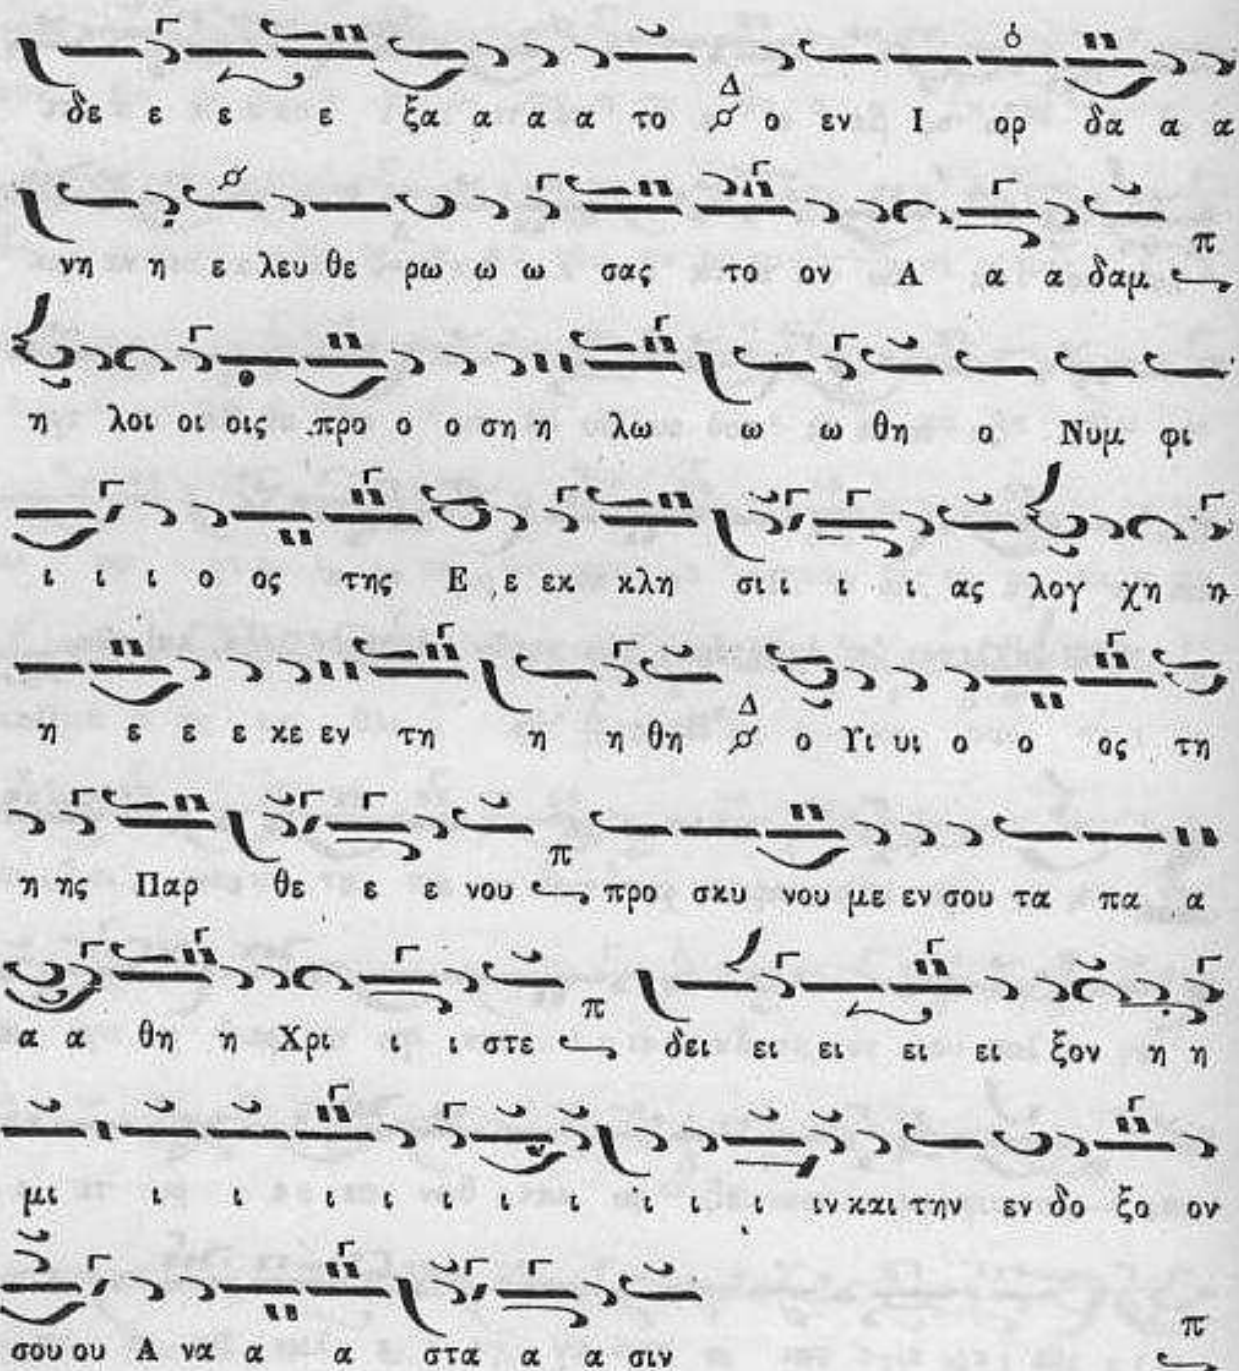 δε ε ε ε ξα α α α το Δ ο εν Ι ορ δα α α
νη η ε λευ θε ρω ω ω σας το ον Α α α δαμ π
η λοι οι οις προ ο ο ση η λω ω ω θη ο Νυμ φι
ι ι ι ο ος της Ε ε εκ κλη σι ι ι ι ας λογ χη η
η ε ε ε κε εν τη η η θη Δ ο Υι υι ο ο ος τη
η ης Παρ θε ε ε νου π προ σκυ νου με εν σου τα πα α
α α θη η Χρι ι ι στε π δει ει ει ει ει ξον η η
μι ι ι ι ι ι ι ι ι ι ιν και την εν δο ξο ον
σου ου Α να α α στα α α σιν π